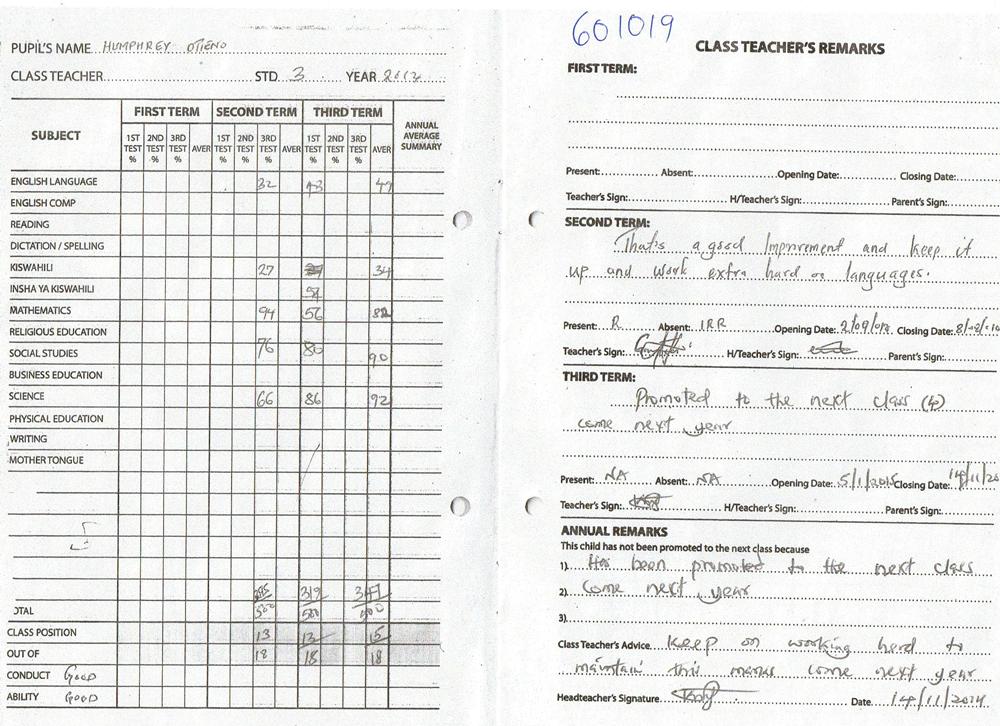 PUPIL'S NAME HUMPHREY OTIENO
CLASS TEACHER STD. 3 YEAR
SUBJECT FIRST TERM SECOND TERM THIRD TERM ANNUAL AVERAGE SUMMARY
1ST TEST % 2ND TEST % 3RD TEST % AVER 1ST TEST % 2ND TEST % 3RD TEST % AVER 1ST TEST % 2ND TEST % 3RD TEST % AVER
ENGLISH LANGUAGE 32
ENGLISH COMP
READING
DICTATION / SPELLING
KISWAHILI 27 34
INSHA YA KISWAHILI
MATHEMATICS 94 56
RELIGIOUS EDUCATION
SOCIAL STUDIES 76 80 90
BUSINESS EDUCATION
SCIENCE 66 86 92
PHYSICAL EDUCATION
WRITING
MOTHER TONGUE
319 347
OTAL 500 500 500
CLASS POSITION 13 13 15
OUT OF 18 18 18
CONDUCT GOOD
ABILITY GOOD
601019
CLASS TEACHER'S REMARKS
FIRST TERM:
Present: Absent: Opening Date: Closing Date:
Teacher's Sign: H/Teacher's Sign: Parent's Sign:
SECOND TERM:
That's a good Improvement and keep it
up and work extra hard on languages.
Present: R Absent: IRR Opening Date: Closing Date:
Teacher's Sign: H/Teacher's Sign: Parent's Sign:
THIRD TERM:
Promoted to the next class (4)
come next year
Present: NA Absent: NA Opening Date: 5/1/2015 Closing Date: 14/11/20
Teacher's Sign: H/Teacher's Sign: Parent's Sign:
ANNUAL REMARKS
This child has not been promoted to the next class because
1) Has been promoted to the next class
2) Come next year
3)
Class Teacher's Advice Keep on working hard to
maintain this marks come next year
Headteacher's Signature Date 14/11/2014